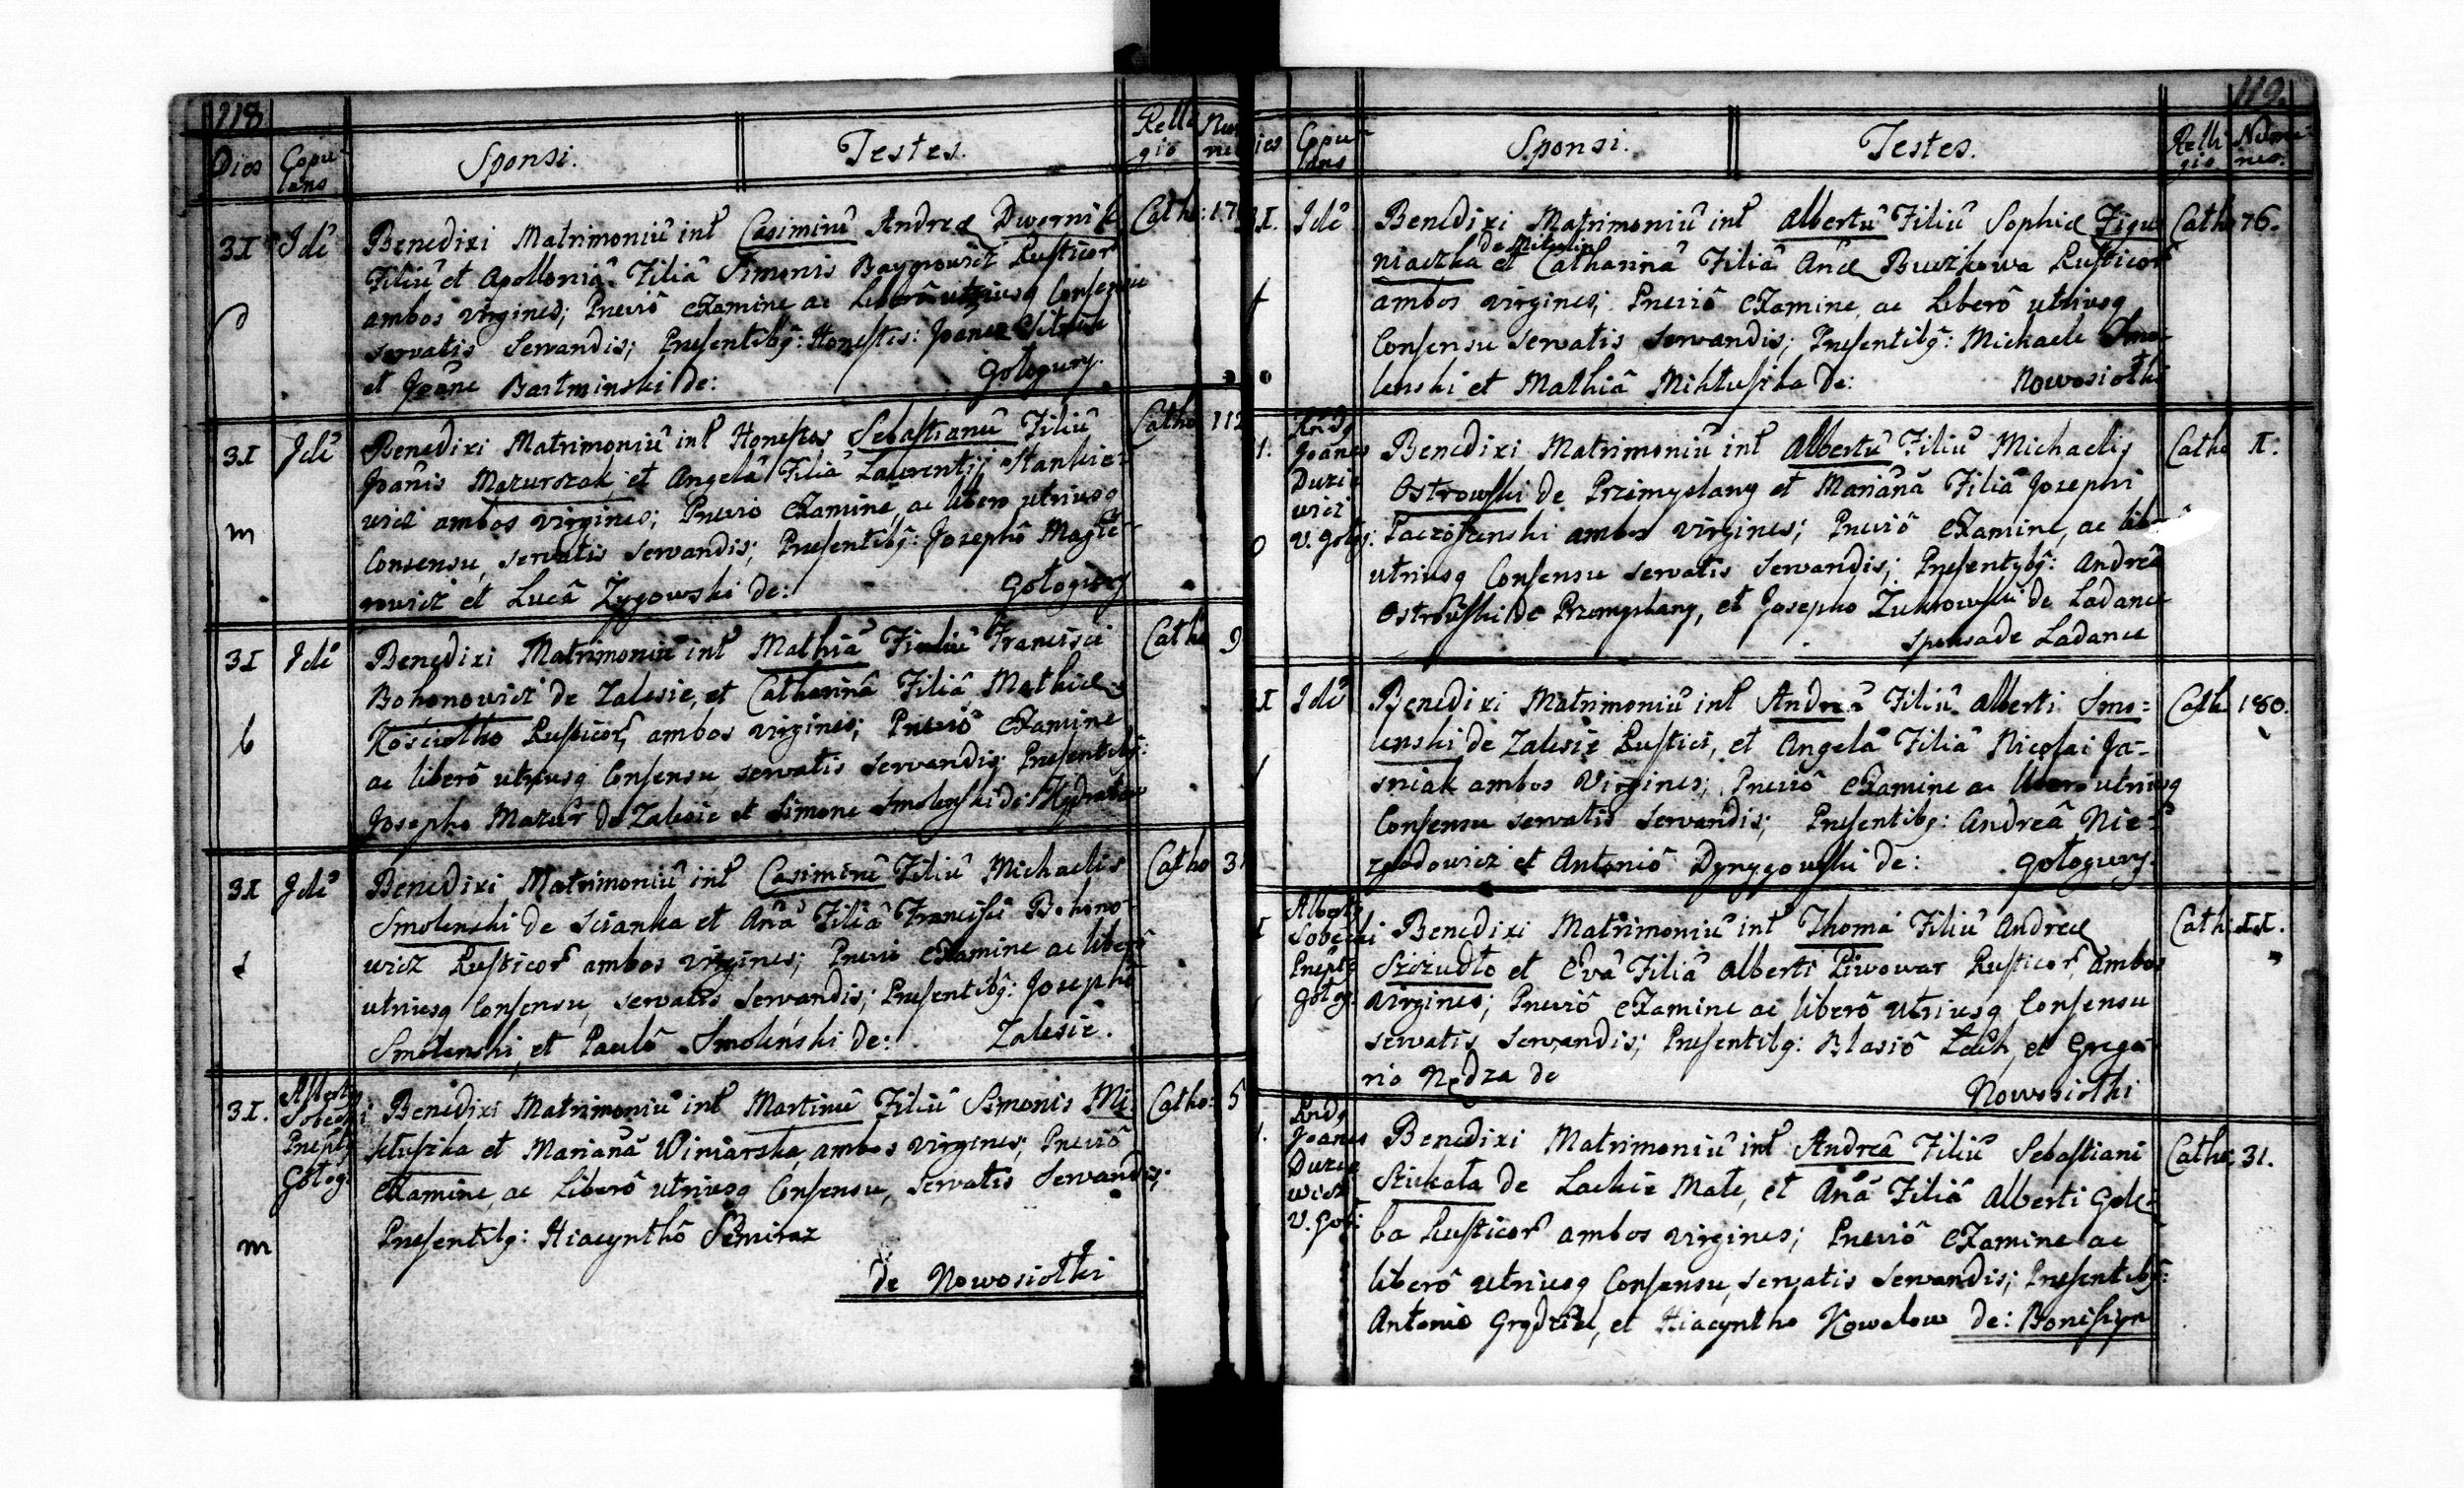 118.
Dies Copu- Sponsi. Testes. Relli Nu
lans gio me
31 Idē Benedixi Matrimoniū int̄ Casimirū Andreæ Dwornik Catho: 17
Filiū et Apolloniā Filiā Simonis Baygrowicz Rusticor
ambos virgines; Previô Examine, ac Liberô utriusq Consensu
servatis Servandis; Presentibq: Honestis: Joane
et Joāne Bartminski de: Gołogury.
31 Idē Benedixi Matrimoniū int̄ Honestos Sebastianū Filiū Catho 112
Joānis Mazurszak, et Angelā Filiā Laurentij Stankie-
wicz ambos virgines; Previo Examine, ac libero utriusq
m
Consensu, servatis servandis; Presentibq: Josephô Magie
rowicz et Lucâ Zygowski de: Gołogury
31 Idē Benedixi Matrimoniū int̄ Mathiā Filiū Francisci Catho 9
Bohonowicz de Zalesie, et Catharinā Filiā Mathiæ
b Kościołko Rusticor, ambos virgines; Previô Examine
ac liberô utriusq Consensu, servatis servandis; Presentibq:
Josepho Mazur de Zalesie et Simone Smolenski de
31 Idē Benedixi Matrimoniū int̄ Casimirū Filiū Michaelis Catho 3
Smolenski de Scianka et Anā Filiā Francisci Bohono-
wicz Rusticor ambos virgines; Previ Examine ac liberô
utriusq Consensu, servatis Servandis; Presentibq: Josephô
Smolenski, et Paulô Smoleński de: Zalesie.
31. Alberty Sobecki Prept Gołog: Benedixi Matrimoniū int̄ Martinū Filiū Simonis Mi- Catho: 5
kłuszka et Marianā Winiarska, ambos virgines; Previô
Examine, ac Liberô utriusq Consensu, Servatis Servandis;
m Presentibq: Hiacynthô
de Nowosiołki
119.
ies Copu- Sponsi. Testes. Relli Nume-
lans gio. rus.
31. Idē Benedixi Matrimoniū int̄ Albertū Filiū Sophiæ Figur Catho 76.
de Mitulin
niaczka et Catharinā Filiā Anæ Buczkowa Rusticor
ambos virgines; Previô Examine, ac Liberô utriusq
Consensu servatis Servandis; Presentibq: Michaele Smo-
lenski et Mathiâ Mikłuszka de: Nowosiołki
1. Rndq Joanes Durie wicz V. Gołog: Benedixi Matrimoniū int̄ Albertū Filiū Michaelis Catho II.
Ostrowski de Przemyslany et Marianā Filiā Josephi
ambos virgines; Previô Examine, ac
utriusq Consensu servatis Servandis; Presentybq: Andreâ
Ostrowski de Przemyslany, et Josepho Zukrowski de Ladance
Sponsa de Ladance
I Idē Benedixi Matrimoniū int̄ Andreā Filiū Alberti Smo- Cath 180.
lenski de Zalesie Rustici, et Angelā Filiā Nicolai Ja-
sniak ambos Virgines; Previô Examine ac libero utriusq
Consensu servatis Servandis; Presentibq: Andreâ Nie-
zgodowicz et Antoniô Dyrygowski de: Gołogury.
I Alberty Sobecki Prept Gołog. Benedixi Matrimoniū int̄ Thomā Filiū Andreæ Cath: II.
Szczudło et Evā Filiā Alberti Piwowar Rusticor, ambos
virgines; Previô Examine ac liberô utriusq Consensu
servatis Servandis; Presentibq: Blasiô Lech, et Grego-
rio Nędza de
Nowosiołki
1. Rndq Joanes Durie wicz V. Goł: Benedixi Matrimoniū int̄ Andreā Filiū Sebastiani Catho: 31.
Szukała de Lackie Małe, et Anā Filiā Alberti Golę-
ba Rusticor ambos virgines; Previô Examine ac
liberô utriusq Consensu, servatis Servandis; Presentibq:
Antonio et Hiacyntho Kowalow de: Boniszyn